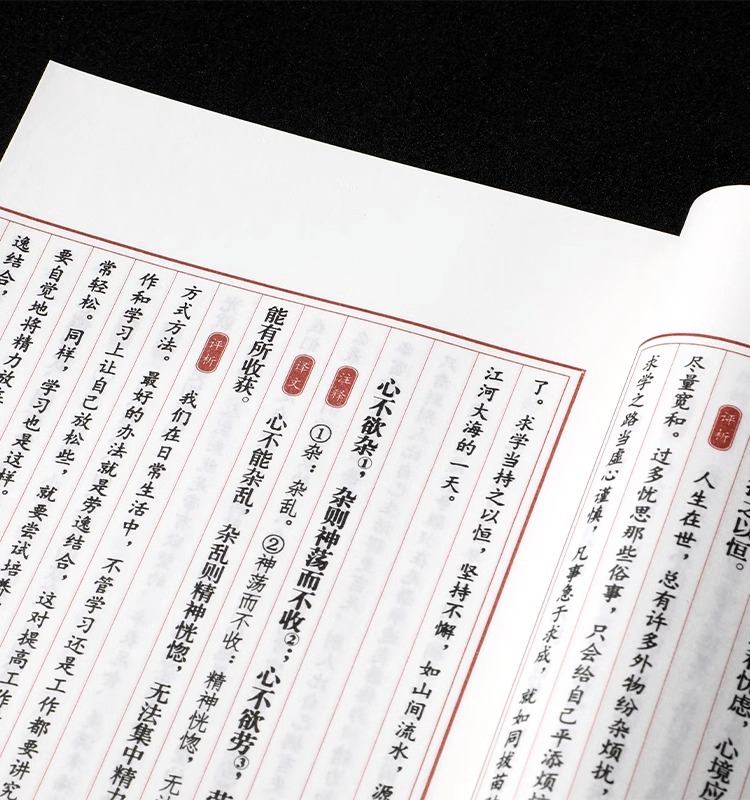 以恒。
忧虑，心境应
评析 人生在世，总有许多外物纷杂烦扰，
尽量宽和。过多忧思那些俗事，只会给自己平添烦
求学之路当虚心谨慎，凡事急于求成，就如同拔苗
了。求学当持之以恒，坚持不懈，如山间流水，源
江河大海的一天。
心不欲杂①，杂则神荡而不收②；心不欲劳③，
注释 ①杂：杂乱。②神荡而不收：精神恍惚，无
译文 心不能杂乱，杂乱则精神恍惚，无法集中精力
能有所收获。
评析 我们在日常生活中，不管学习还是工作都要讲究
方式方法。最好的办法就是劳逸结合，这对提高工作
作和学习上让自己放松些，就要尝试培养
常轻松。同样，学习也是这样。
要自觉地将精力放在
逸结合，